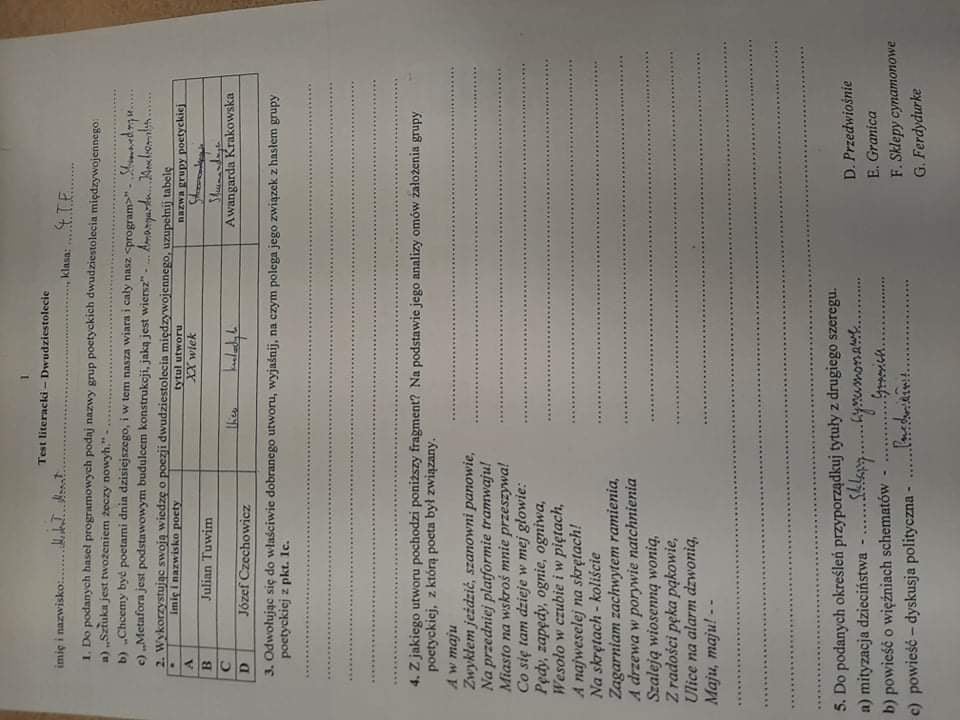 1
Test literacki – Dwudziestolecie
imię i nazwisko:........, klasa: 4 T F
1. Do podanych haseł programowych podaj nazwy grup poetyckich dwudziestolecia międzywojennego:
a) „Sztuka jest twożeniem żeczy nowyh.” -
b) „Chcemy być poetami dnia dzisiejszego, i w tem nasza wiara i cały nasz <program>” -
c) „Metafora jest podstawowym budulcem konstrukcji, jaką jest wiersz” - Awangarda Krakowska
2. Wykorzystując swoją wiedzę o poezji dwudziestolecia międzywojennego, uzupełnij tabelę
* imię i nazwisko poety tytuł utworu nazwa grupy poetyckiej
A XX wiek
B Julian Tuwim
C Awangarda Krakowska
D Józef Czechowicz
3. Odwołując się do właściwie dobranego utworu, wyjaśnij, na czym polega jego związek z hasłem grupy
poetyckiej z pkt. 1c.
4. Z jakiego utworu pochodzi poniższy fragment? Na podstawie jego analizy omów założenia grupy
poetyckiej, z którą poeta był związany.
A w maju
Zwykłem jeździć, szanowni panowie,
Na przedniej platformie tramwaju!
Miasto na wskroś mnie przeszywa!
Co się tam dzieje w mej głowie:
Pędy, zapędy, ognie, ogniwa,
Wesoło w czubie i w piętach,
A najweselej na skrętach!
Na skrętach - koliście
Zagarniam zachwytem ramienia,
A drzewa w porywie natchnienia
Szaleją wiosenną wonią,
Z radości pęka pąkowie,
Ulice na alarm dzwonią,
Maju, maju! - -
5. Do podanych określeń przyporządkuj tytuły z drugiego szeregu.
a) mityzacja dzieciństwa - Sklepy cynamonowe
b) powieść o więźniach schematów - Granica
c) powieść – dyskusja polityczna - Przedwiośnie
D. Przedwiośnie
E. Granica
F. Sklepy cynamonowe
G. Ferdydurke